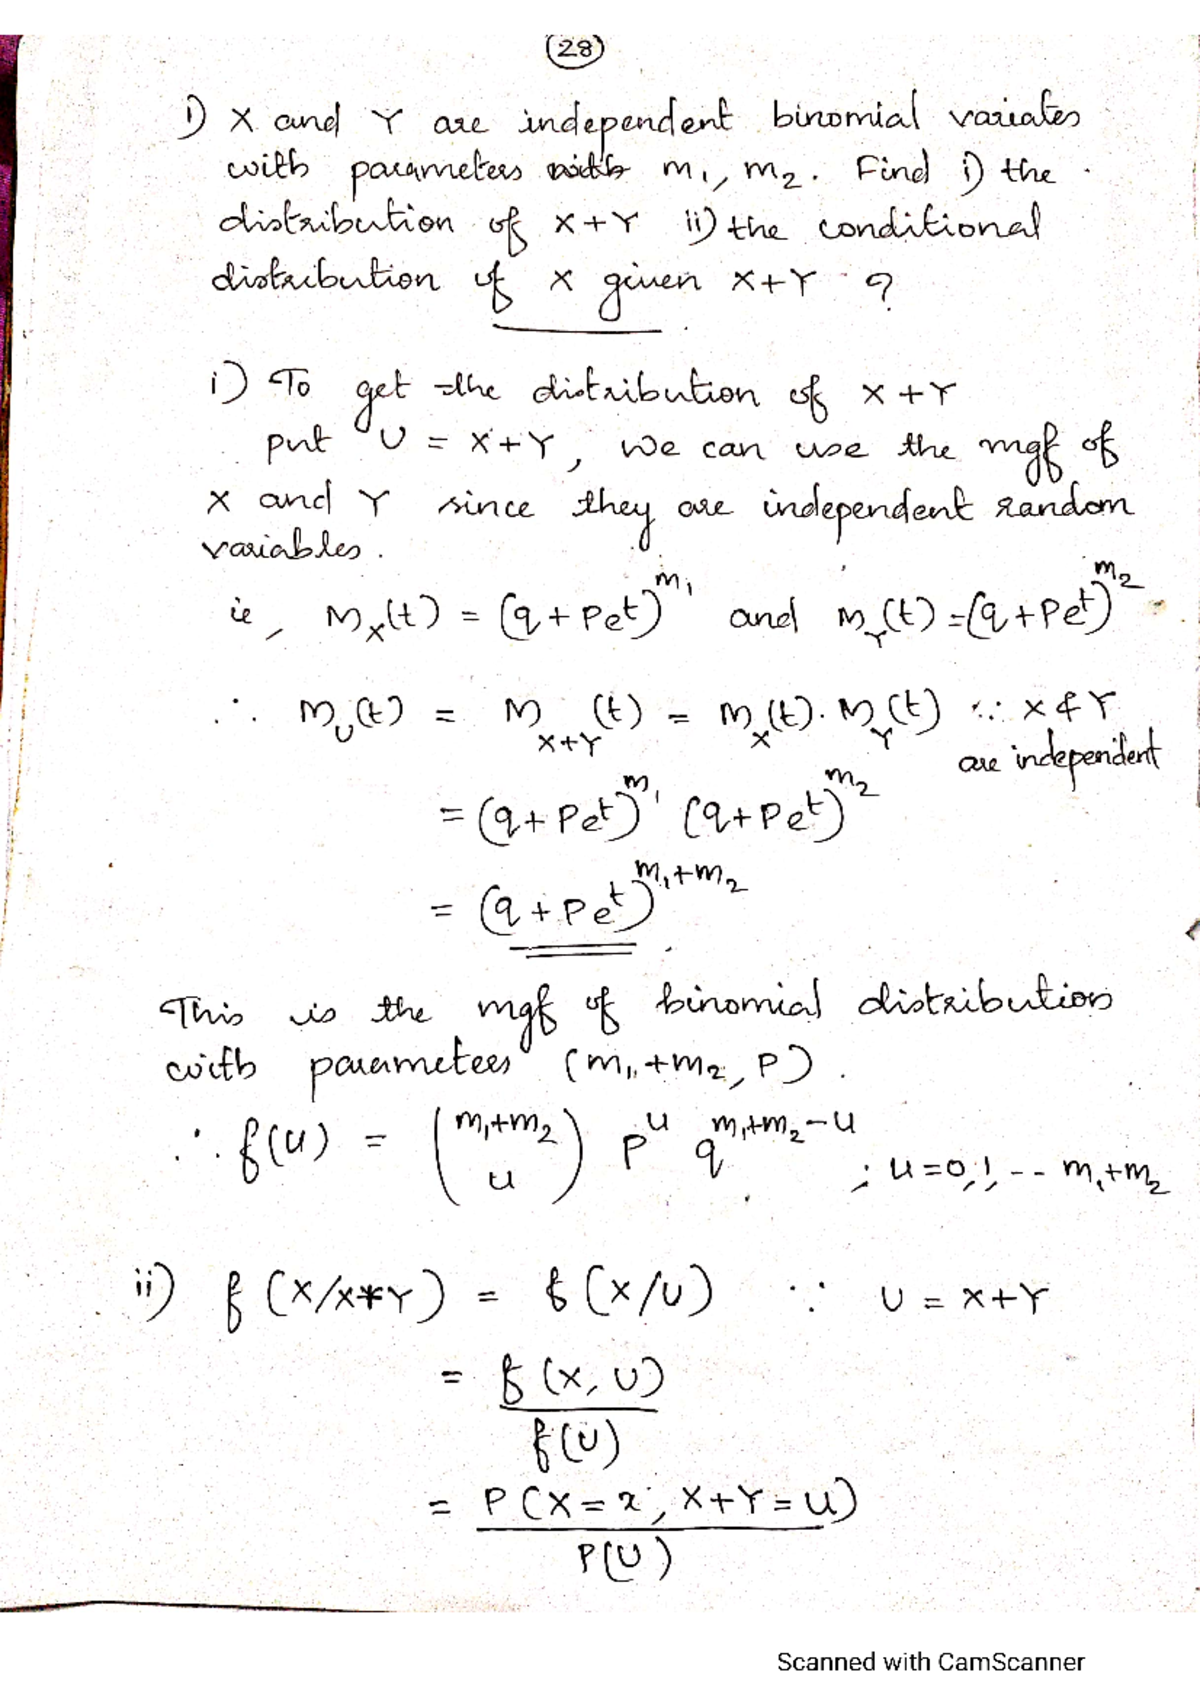 (28)
1) X and Y are independent binomial variates
with parameters with m₁, m₂. Find i) the
distribution of X+Y ii) the conditional
distribution of X given X+Y ?
i) To get the distribution of X+Y
put U = X+Y, we can use the mgf of
X and Y since they are independent random
variables.
ie, M_X(t) = (q+pe^t)^{m₁} and M_Y(t) = (q+pe^t)^{m₂}
∴ M_U(t) = M_{X+Y}(t) = M_X(t). M_Y(t) ∵ X & Y
are independent
= (q+pe^t)^{m₁} (q+pe^t)^{m₂}
= (q+pe^t)^{m₁+m₂}
This is the mgf of binomial distribution
with parameters (m₁+m₂, p).
∴ f(u) = (m₁+m₂ u) p^u q^{m₁+m₂-u} ; u=0,1,-- m₁+m₂
ii) f(X/X+Y) = f(X/U) ∵ U = X+Y
= f(X,U)
f(U)
= P(X=x, X+Y=U)
P(U)
Scanned with CamScanner